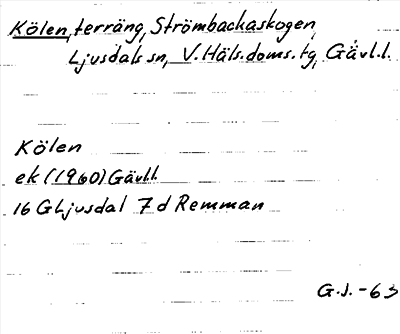 Kölen, terräng, Strömbackaskogen,
Ljusdals sn, V. Häls. doms. tg, Gävl.l.
Kölen
ek (1960) Gävl.l.
16 G Ljusdal 7 d Remman
G.J. -63